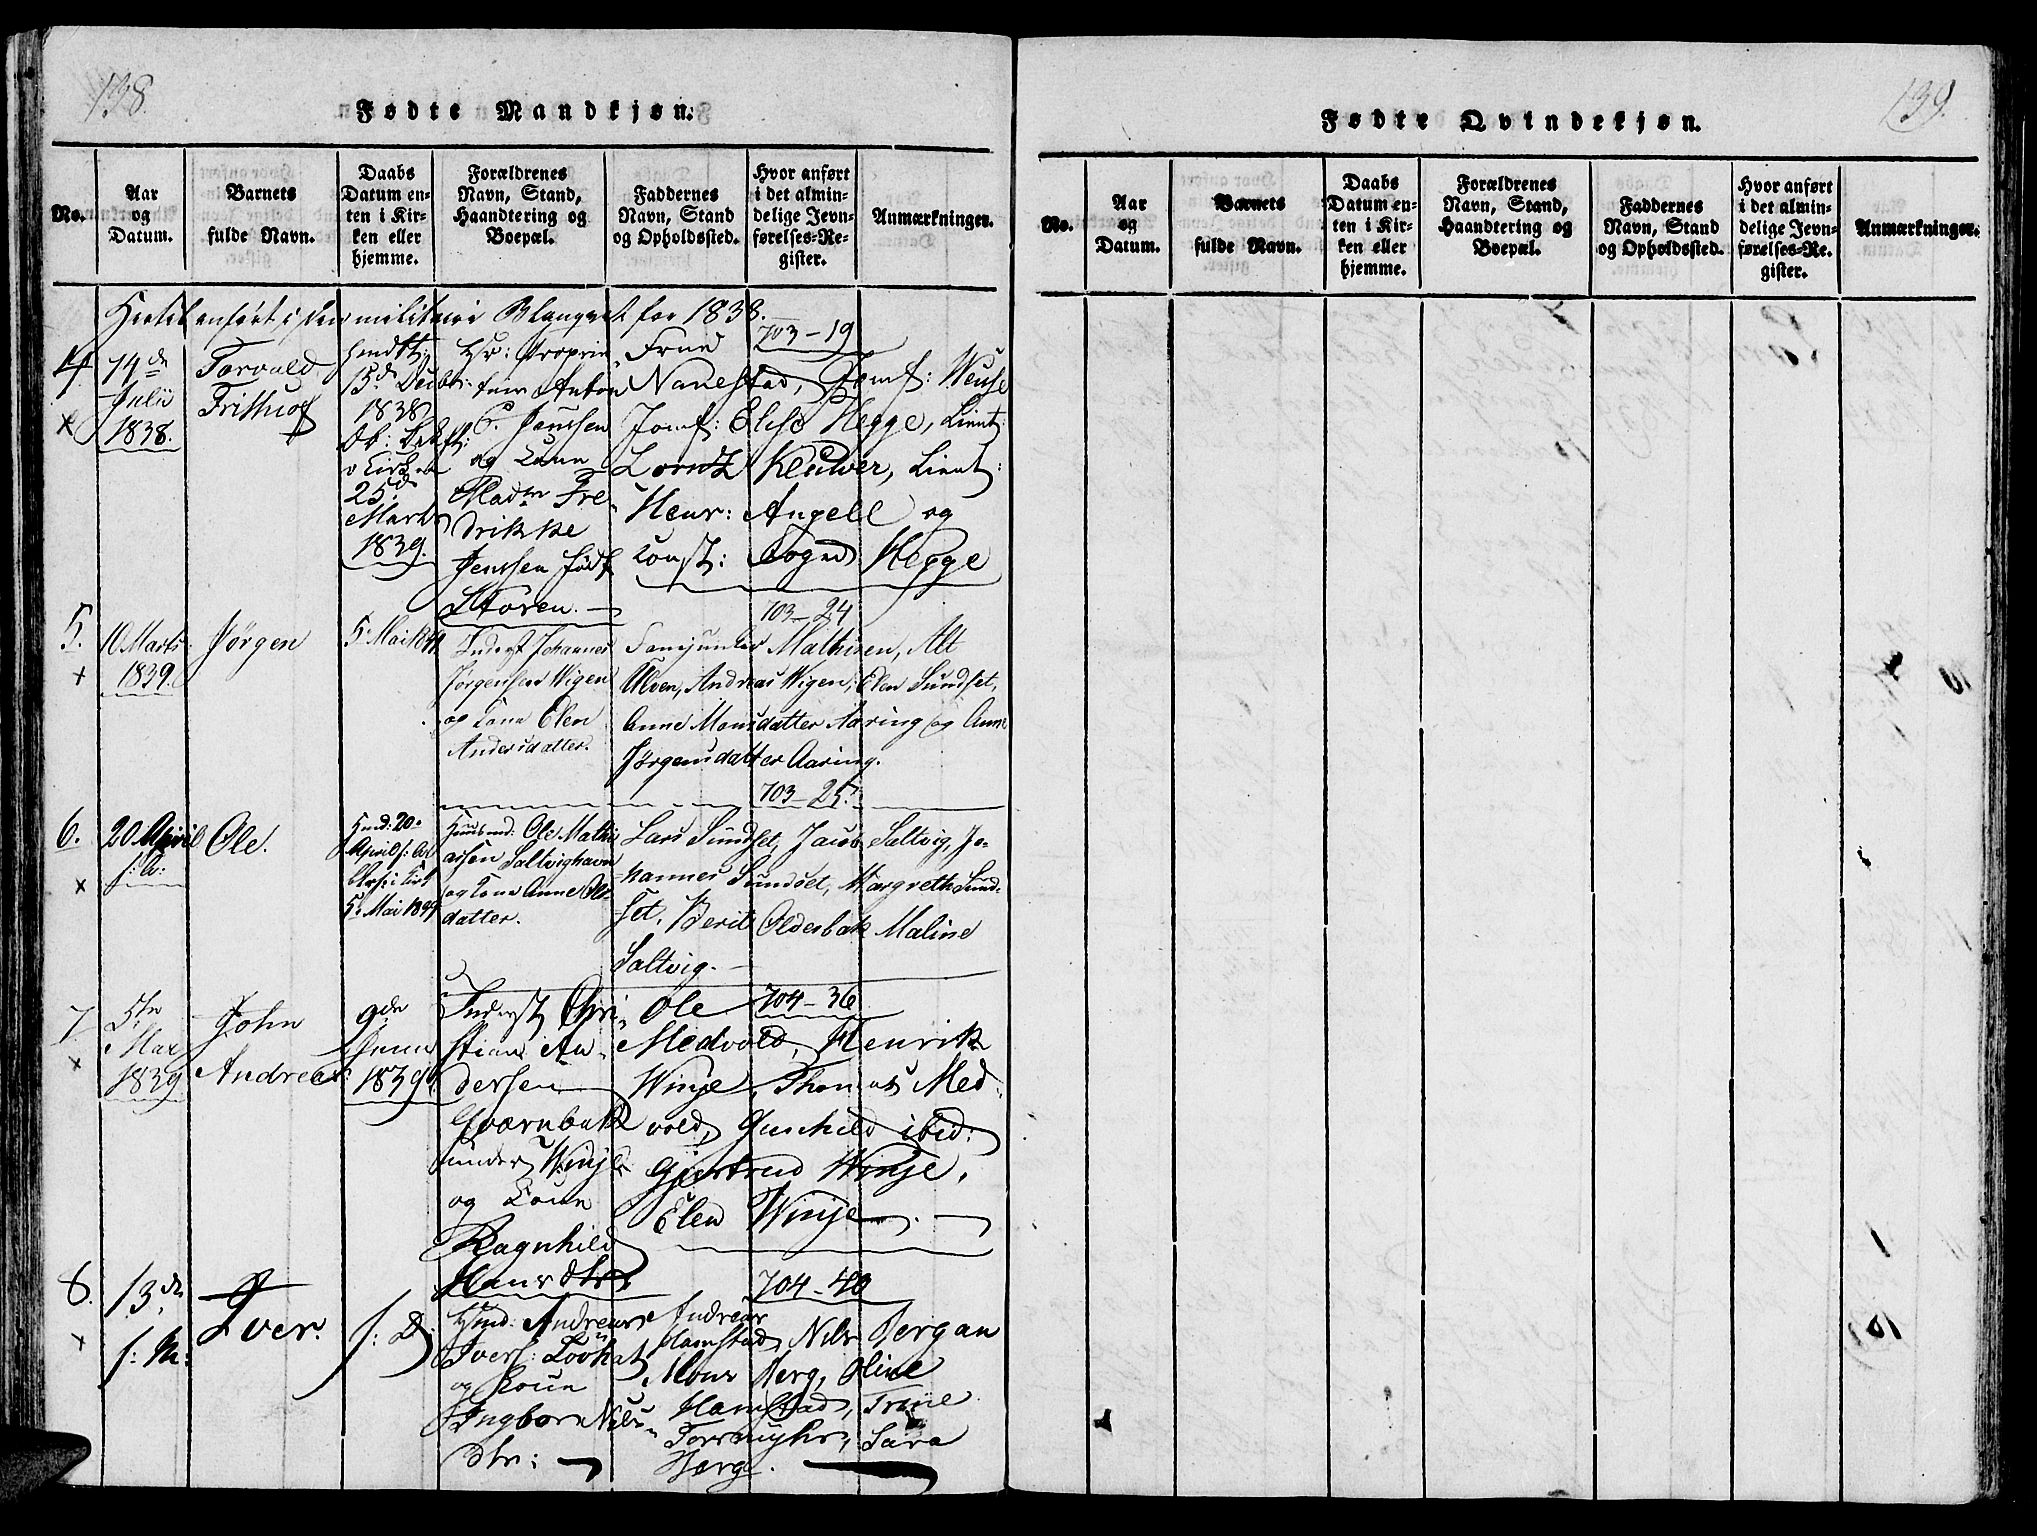 138.
Fødte Mandkjøn.
No.
Aar
og
Datum.
Barnets
fulde Navn.
Daabs
Datum en-
ten i Kir-
ken eller
hjemme.
Forældrenes
Navn, Stand,
Haandtering og
Boepæl.
Faddernes
Navn, Stand
og Opholdssted.
Hvor anført
i det almin-
delige Jevn-
førelses-Re-
gister.
Anmærkninger.
anført i den militaire for 1838.
4.
14de
Julii
1838.
Torvald
Frithiof
15de Decbr:
1838
i Kirken
25de
Marts
1839.
Hr: Proprie-
tair Anton
C. Jenssen
og Kone
Madm Fre-
drikke
Jenssen født
Støren.
703-19
Frue Nanestad, Jomf:
Jomf: Elise Hegge, Lieut:
Lorntz Klüwer, Lieut:
Henr: Angell og
Const: Fogd Hegge
5.
10 Marts
1839.
Jørgen
5. Mai
Inderst Johannes
Jørgensen Wigen
og Kone Elen
Andersdatter.
703-24
Mathisen, Alt
Ulven, Andreas Wigen, Elen Sundset,
Anne Monsdatter Aaring og Anne
Jørgensdatter Aaring.
6.
20 April
s: A:
Ole.
Hmd: 20.
April s: A:
5. Mai
Huusmd: Ole Mathi-
assen Saltvighavn
og Kone Anne Ols-
datter.
703-25.
Lars Sundset, Jacob Saltvig, Jo-
hannes Sundset, Margreth Sund-
set, Berit Oldesbak Maline
Saltvig.
7.
5te
Mai
1839
John
Andreas
9de
Junii
1839
Inderst Chri-
stian An-
dersen
Qværnbak
under Winje
og Kone
Ragnhild
Hansdtr
704-36
Ole
Medvold, Henrik
Winje, Thomas Med-
vold, Gunhild ibid:
Gjertrud Winje,
Elen Winje.
8.
13de
s: M:
Iver.
s: D:
Hmd: Andreas
Ivers: Lövhat
og Kone
Ingborn Nils-
dtr:
704-40
Andreas
Hamstad, Nils Bergan
Mons Berg, Oline
Hamstad, Trine
Sara
Berg.
139.
Fødte Qvindekjøn.
No.
Aar
og
Datum.
Barnets
fulde Navn.
Daabs
Datum en-
ten i Kir-
ken eller
hjemme.
Forældrenes
Navn, Stand,
Haandtering og
Boepæl.
Faddernes
Navn, Stand
og Opholdssted.
Hvor anført
i det almin-
delige Jevn-
førelses-Re-
gister.
Anmærkninger.